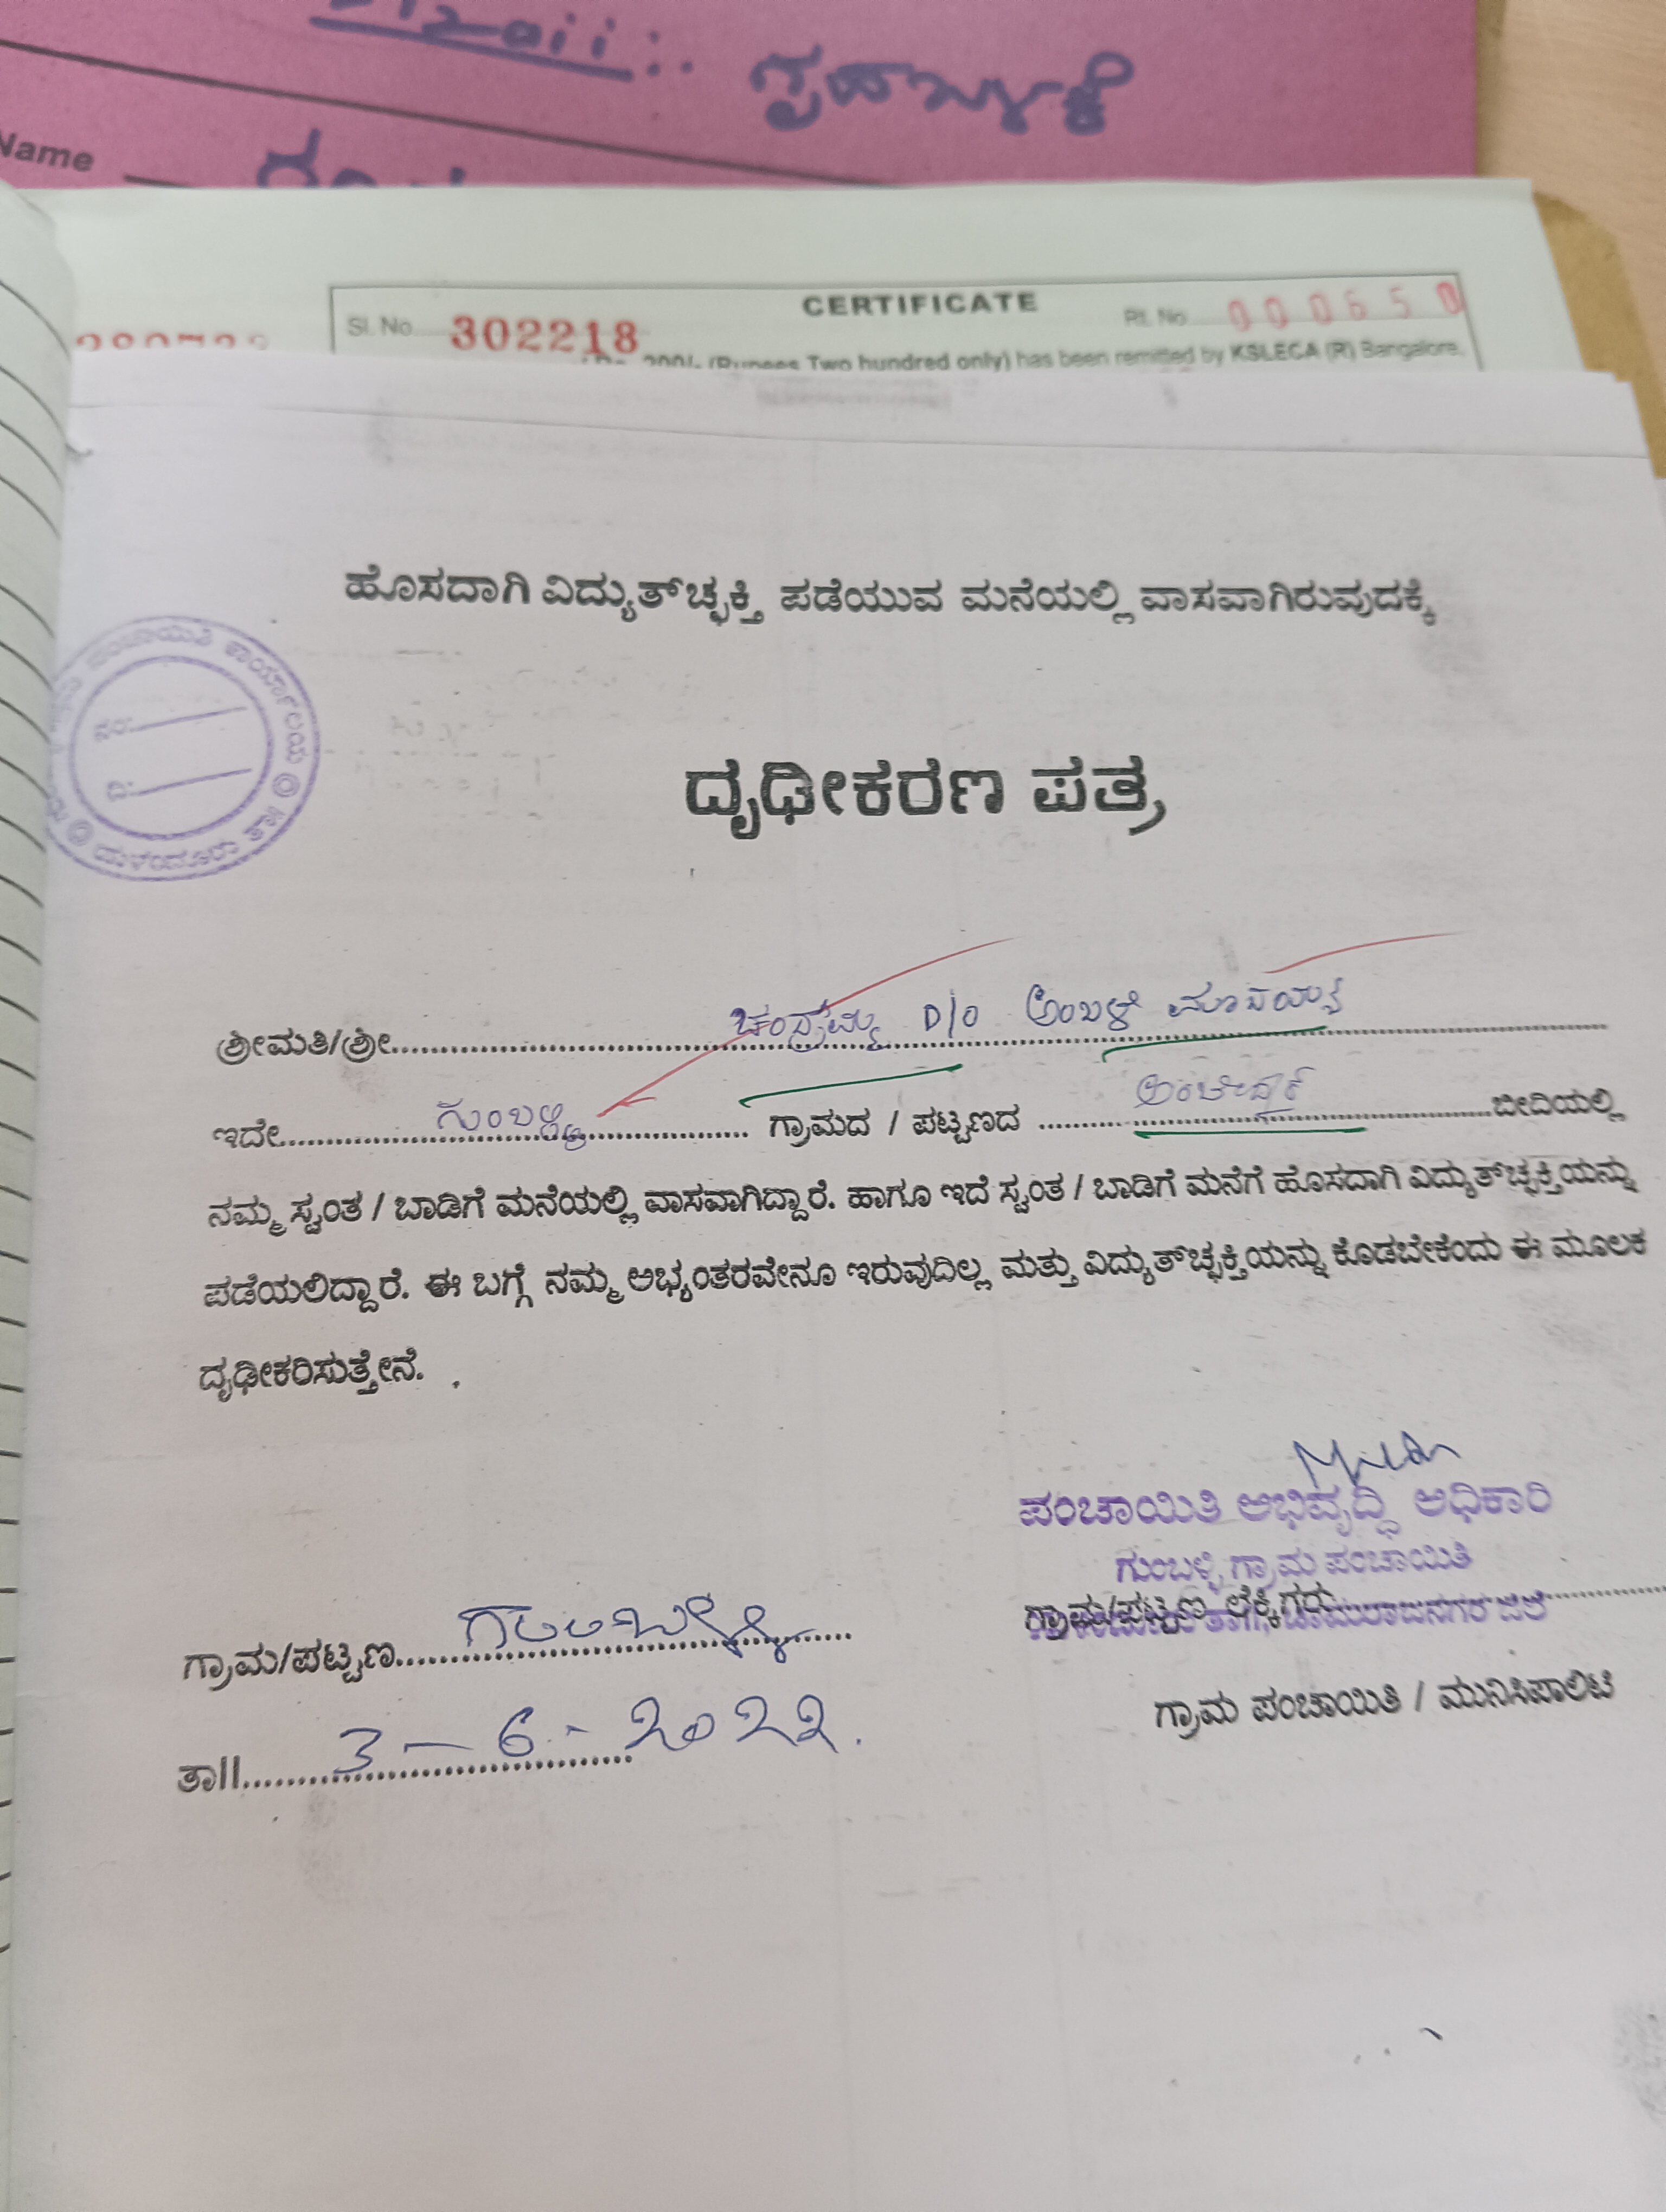 ಗೃಹಬಳಕೆ
Name
CERTIFICATE
Sl. No. 302218 Rt. No 000650
200/- (Rupees Two hundred only) has been remitted by KSLECA (R) Bangalore.
ಹೊಸದಾಗಿ ವಿದ್ಯುತ್‌ಚ್ಛಕ್ತಿ ಪಡೆಯುವ ಮನೆಯಲ್ಲಿ ವಾಸವಾಗಿರುವುದಕ್ಕೆ
ಪಂಚಾಯಿತಿ ಕಾರ್ಯಾಲಯ
ನಂ:
ದಿ:
ದೃಢೀಕರಣ ಪತ್ರ
ಶ್ರೀಮತಿ/ಶ್ರೀ.......... D/O ಅಂಬಳೆ ..........
ಇದೇ.......... ಗುಂಬಳ್ಳಿ .......... ಗ್ರಾಮದ / ಪಟ್ಟಣದ .......... ಬೀದಿಯಲ್ಲಿ
ನಮ್ಮ ಸ್ವಂತ / ಬಾಡಿಗೆ ಮನೆಯಲ್ಲಿ ವಾಸವಾಗಿದ್ದಾರೆ. ಹಾಗೂ ಇದೆ ಸ್ವಂತ / ಬಾಡಿಗೆ ಮನೆಗೆ ಹೊಸದಾಗಿ ವಿದ್ಯುತ್‌ಚ್ಛಕ್ತಿಯನ್ನು
ಪಡೆಯಲಿದ್ದಾರೆ. ಈ ಬಗ್ಗೆ ನಮ್ಮ ಅಭ್ಯಂತರವೇನೂ ಇರುವುದಿಲ್ಲ ಮತ್ತು ವಿದ್ಯುತ್‌ಚ್ಛಕ್ತಿಯನ್ನು ಕೊಡಬೇಕೆಂದು ಈ ಮೂಲಕ
ದೃಢೀಕರಿಸುತ್ತೇನೆ.
ಪಂಚಾಯಿತಿ ಅಭಿವೃದ್ಧಿ ಅಧಿಕಾರಿ
ಗುಂಬಳ್ಳಿ ಗ್ರಾಮ ಪಂಚಾಯಿತಿ
ಗ್ರಾಮ/ಪಟ್ಟಣ ಲೆಕ್ಕಿಗರು..........
ಚಾಮರಾಜನಗರ ಜಿಲ್ಲೆ
ಗ್ರಾಮ/ಪಟ್ಟಣ.......... ಗುಂಬಳ್ಳಿ
ಗ್ರಾಮ ಪಂಚಾಯಿತಿ / ಮುನಿಸಿಪಾಲಿಟಿ
ತಾ||.......... 3-6-2022.